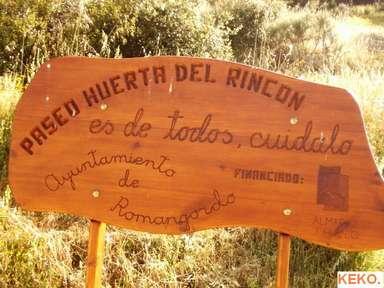 PASEO HUERTA DEL RINCON
es de todos, cuidalo
Ayuntamiento
de
Romangordo
FINANCIADO:
KEKO.